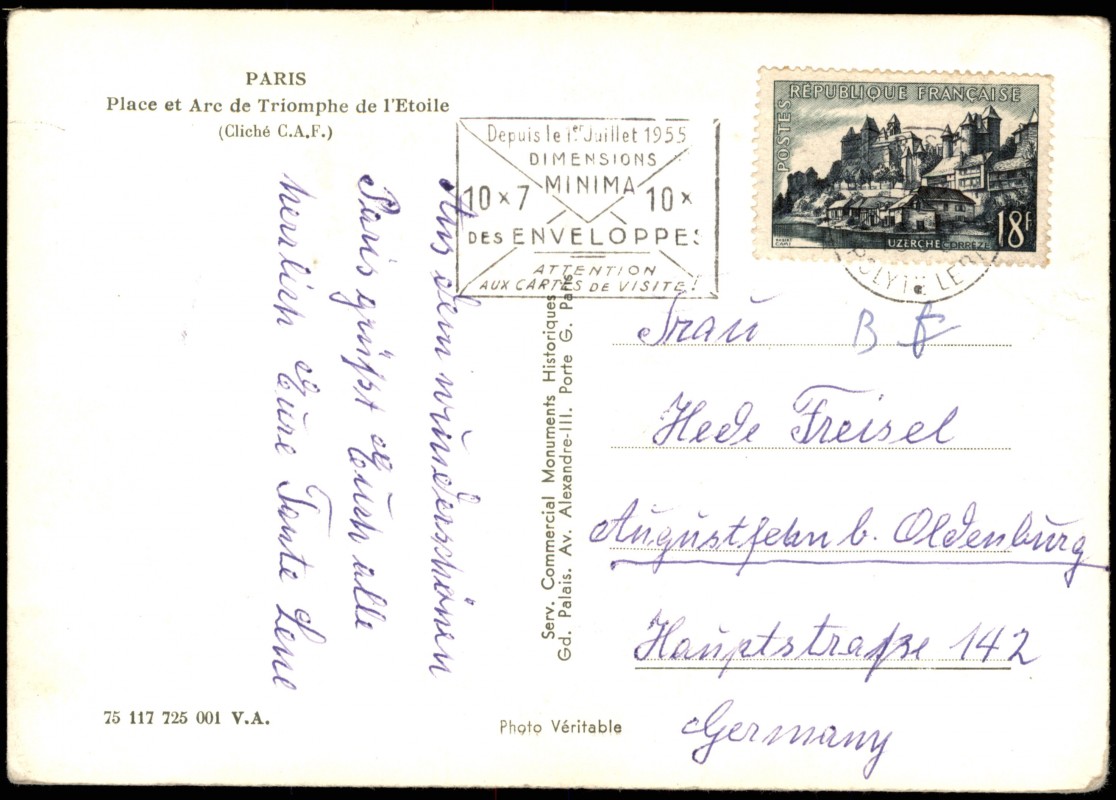 PARIS
Place et Arc de Triomphe de l'Etoile
(Cliché C.A.F.)
Aus dem wunderschönen
Paris grüßt Euch alle
herzlich Eure Tante Lene
75 117 725 001 V.A.
Depuis le 1er Juillet 1955
DIMENSIONS
MINIMA
10 x 7 10 x
DES ENVELOPPES
ATTENTION
AUX CARTES DE VISITE !
POSTES
RÉPUBLIQUE FRANÇAISE
18F
UZERCHE CORRÈZE
Serv. Commercial Monuments Historiques
Gd. Palais. Av. Alexandre-III. Porte G. Paris
Photo Véritable
Frau
B f
Hede Freisel
Augustfehn b. Oldenburg
Hauptstraße 142
Germany